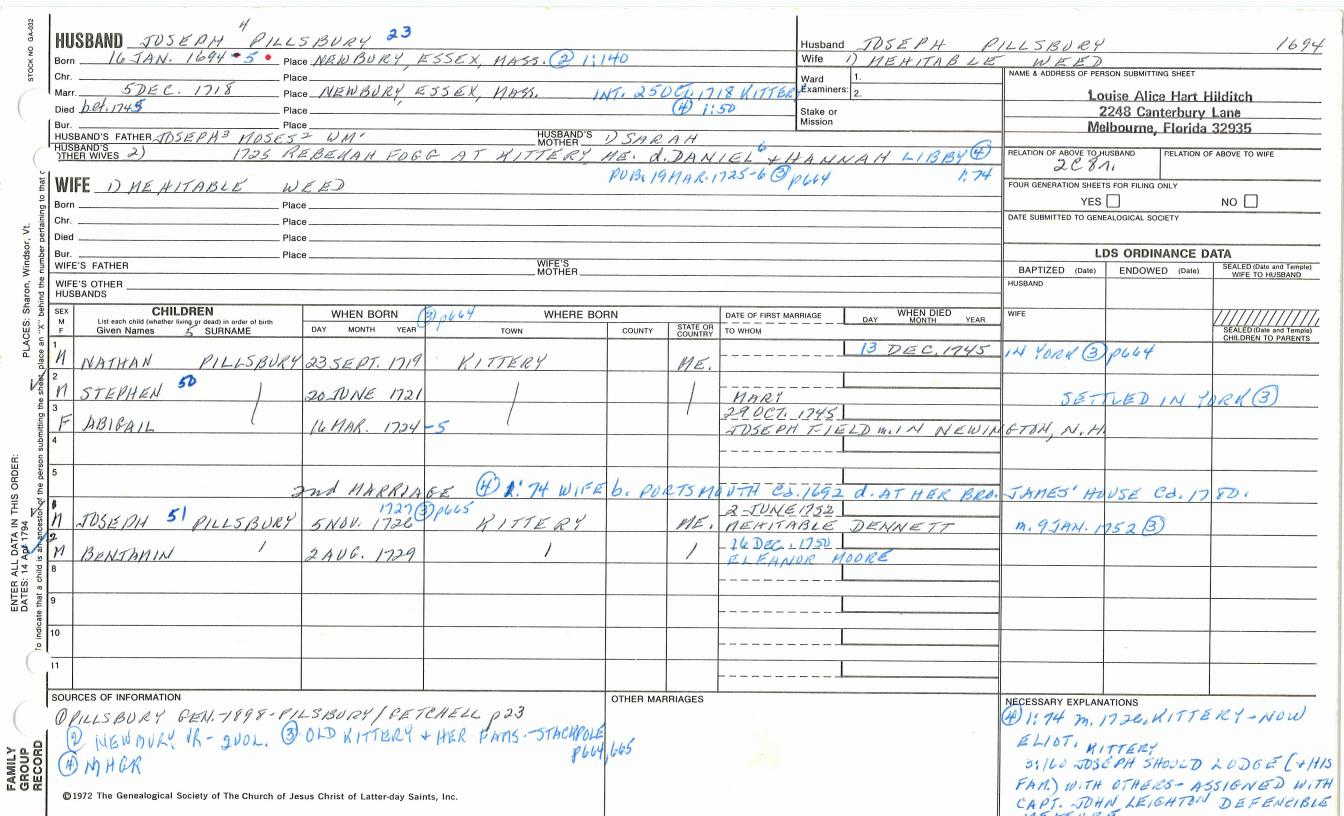 STOCK NO GA-032
HUSBAND JOSEPH 4 PILLSBURY 23
Born 16 JAN. 1694-5 Place NEWBURY, ESSEX, MASS. (2) 1:140
Chr. Place
Marr. 5 DEC. 1718 Place NEWBURY, ESSEX, MASS. INT. 25 OCT. 1718 KITTERY
Died bef. 1745 Place (4) 1:50
Bur. Place
HUSBAND'S FATHER JOSEPH3 MOSES2 WM1 HUSBAND'S MOTHER 1) SARAH
HUSBAND'S OTHER WIVES 2) 1725 REBEKAH FOGG AT KITTERY ME. d. DANIEL6 + HANNAH LIBBY (4)
PUB. 19 MAR. 1725-6 (3) p664 1:74
Husband JOSEPH PILLSBURY 1694
Wife 1) MEHITABLE WEED
Ward 1.
Examiners: 2.
Stake or
Mission
NAME & ADDRESS OF PERSON SUBMITTING SHEET
Louise Alice Hart Hilditch
2248 Canterbury Lane
Melbourne, Florida 32935
RELATION OF ABOVE TO HUSBAND RELATION OF ABOVE TO WIFE
2C8r.
FOUR GENERATION SHEETS FOR FILING ONLY
YES NO
DATE SUBMITTED TO GENEALOGICAL SOCIETY
WIFE 1) MEHITABLE WEED
Born Place
Chr. Place
Died Place
Bur. Place
WIFE'S FATHER WIFE'S MOTHER
WIFE'S OTHER HUSBANDS
LDS ORDINANCE DATA
BAPTIZED (Date) ENDOWED (Date) SEALED (Date and Temple) WIFE TO HUSBAND
HUSBAND
WIFE
SEALED (Date and Temple) CHILDREN TO PARENTS
SEX M F
CHILDREN
List each child (whether living or dead) in order of birth
Given Names 5 SURNAME
WHEN BORN (3) p664
DAY MONTH YEAR
WHERE BORN
TOWN COUNTY STATE OR COUNTRY
DATE OF FIRST MARRIAGE
TO WHOM
WHEN DIED
DAY MONTH YEAR
1 M NATHAN PILLSBURY 23 SEPT. 1719 KITTERY ME. 13 DEC. 1745 IN YORK (3) p664
2 M STEPHEN 50 20 JUNE 1721 MARY SETTLED IN YORK (3)
3 F ABIGAIL 16 MAR. 1724-5 29 OCT. 1745 JOSEPH FIELD m. IN NEWINGTON, N.H.
4
5 2nd MARRIAGE (4) 1:74 WIFE b. PORTSMOUTH Cd. 1692 d. AT HER BRO. JAMES' HOUSE Cd. 1780.
1 M JOSEPH 51 PILLSBURY 5 NOV. 1726 1727 (3) p665 KITTERY ME. 2 JUNE 1752 MEHITABLE DENNETT m. 9 JAN. 1752 (3)
2 M BENJAMIN 2 AUG. 1729 16 DEC. 1750 ELEANOR MOORE
8
9
10
11
SOURCES OF INFORMATION
(1) PILLSBURY GEN.-1898-PILSBURY/GETCHELL p23
(2) NEWBURY VR-2VOL. (3) OLD KITTERY + HER FAMS.-STACKPOLE
p664,665
(4) NHGR
OTHER MARRIAGES
NECESSARY EXPLANATIONS
(4) 1:74 m. 1726, KITTERY-NOW
ELIOT, KITTERY
3:160 JOSEPH SHOULD LODGE (+HIS
FAM.) WITH OTHERS-ASSIGNED WITH
CAPT. JOHN LEIGHTON DEFENCIBLE
©1972 The Genealogical Society of The Church of Jesus Christ of Latter-day Saints, Inc.
FAMILY
GROUP
RECORD
ENTER ALL DATA IN THIS ORDER:
DATES: 14 Apr 1794
PLACES: Sharon, Windsor, Vt.
To indicate that a child is an ancestor of the person submitting the sheet, place an "X" behind the number pertaining to that